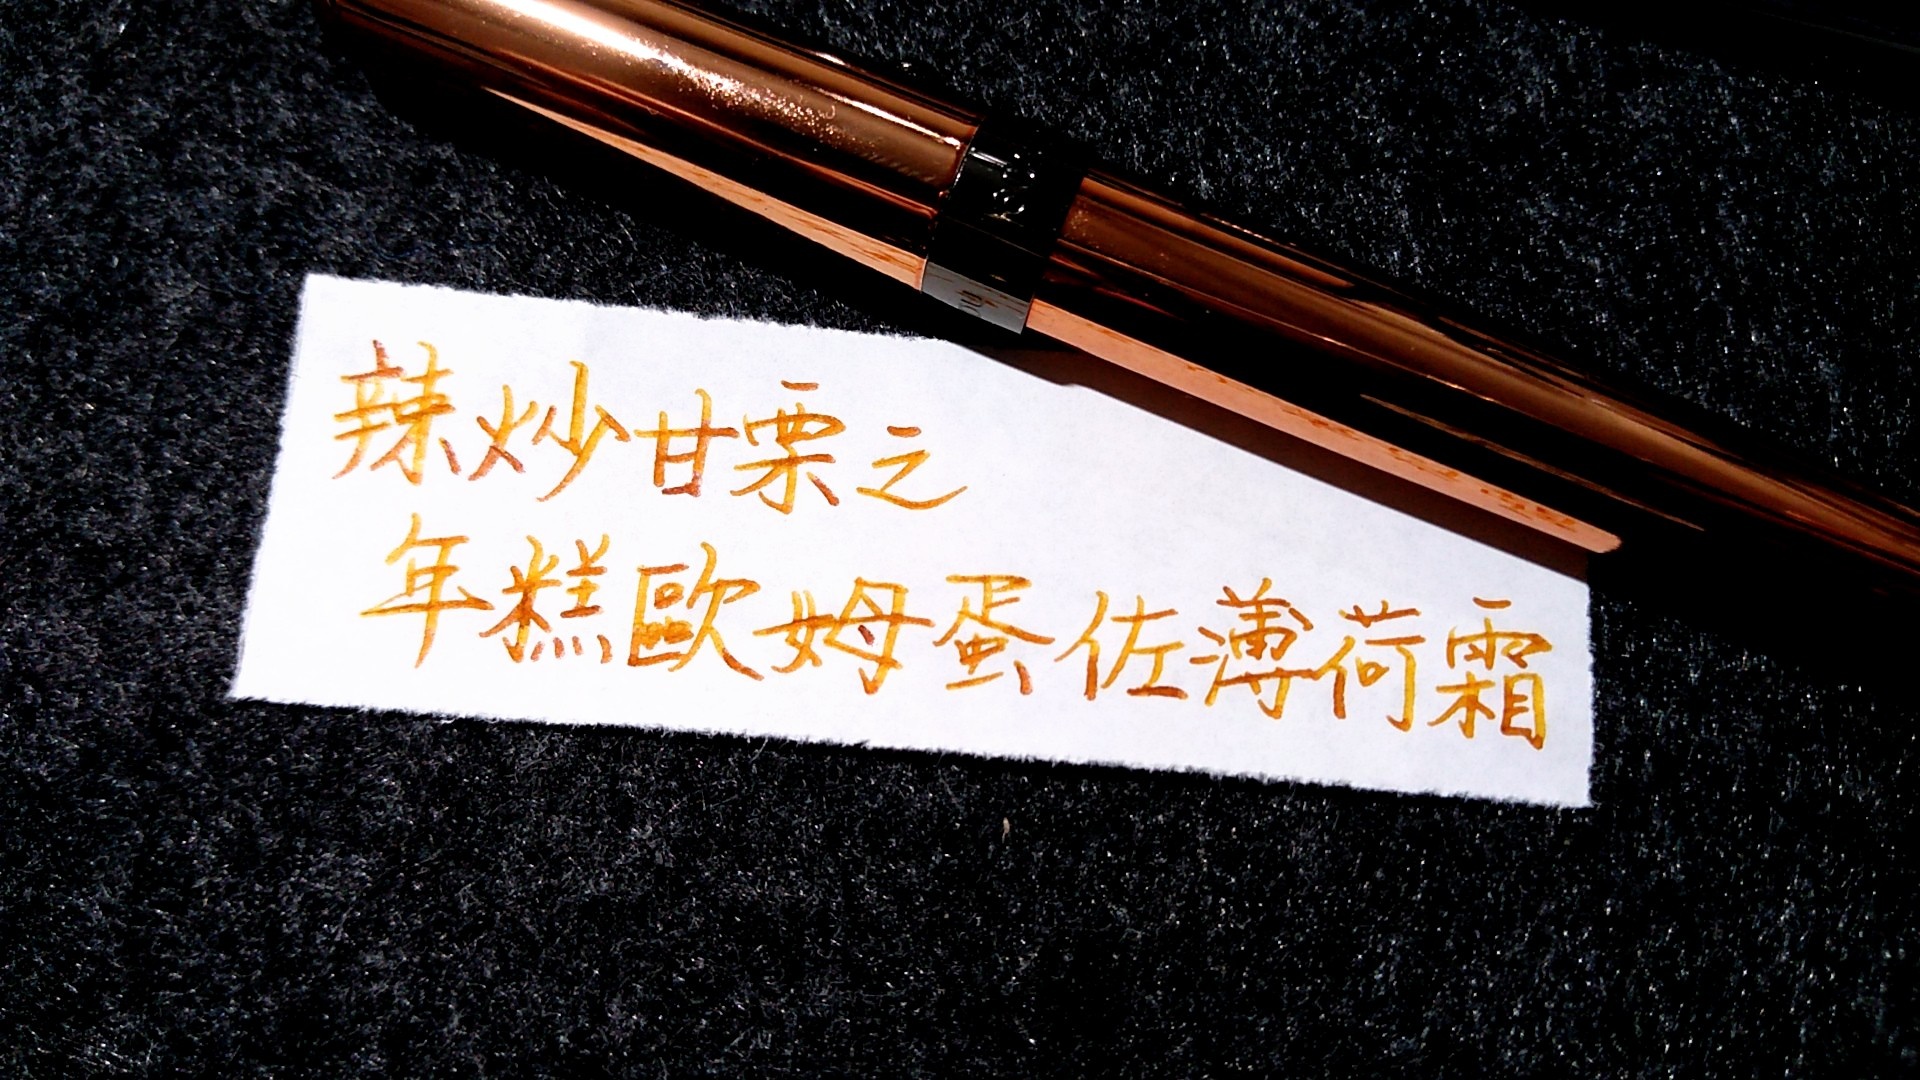 辣炒甘栗之
年糕歐姆蛋佐薄荷霜